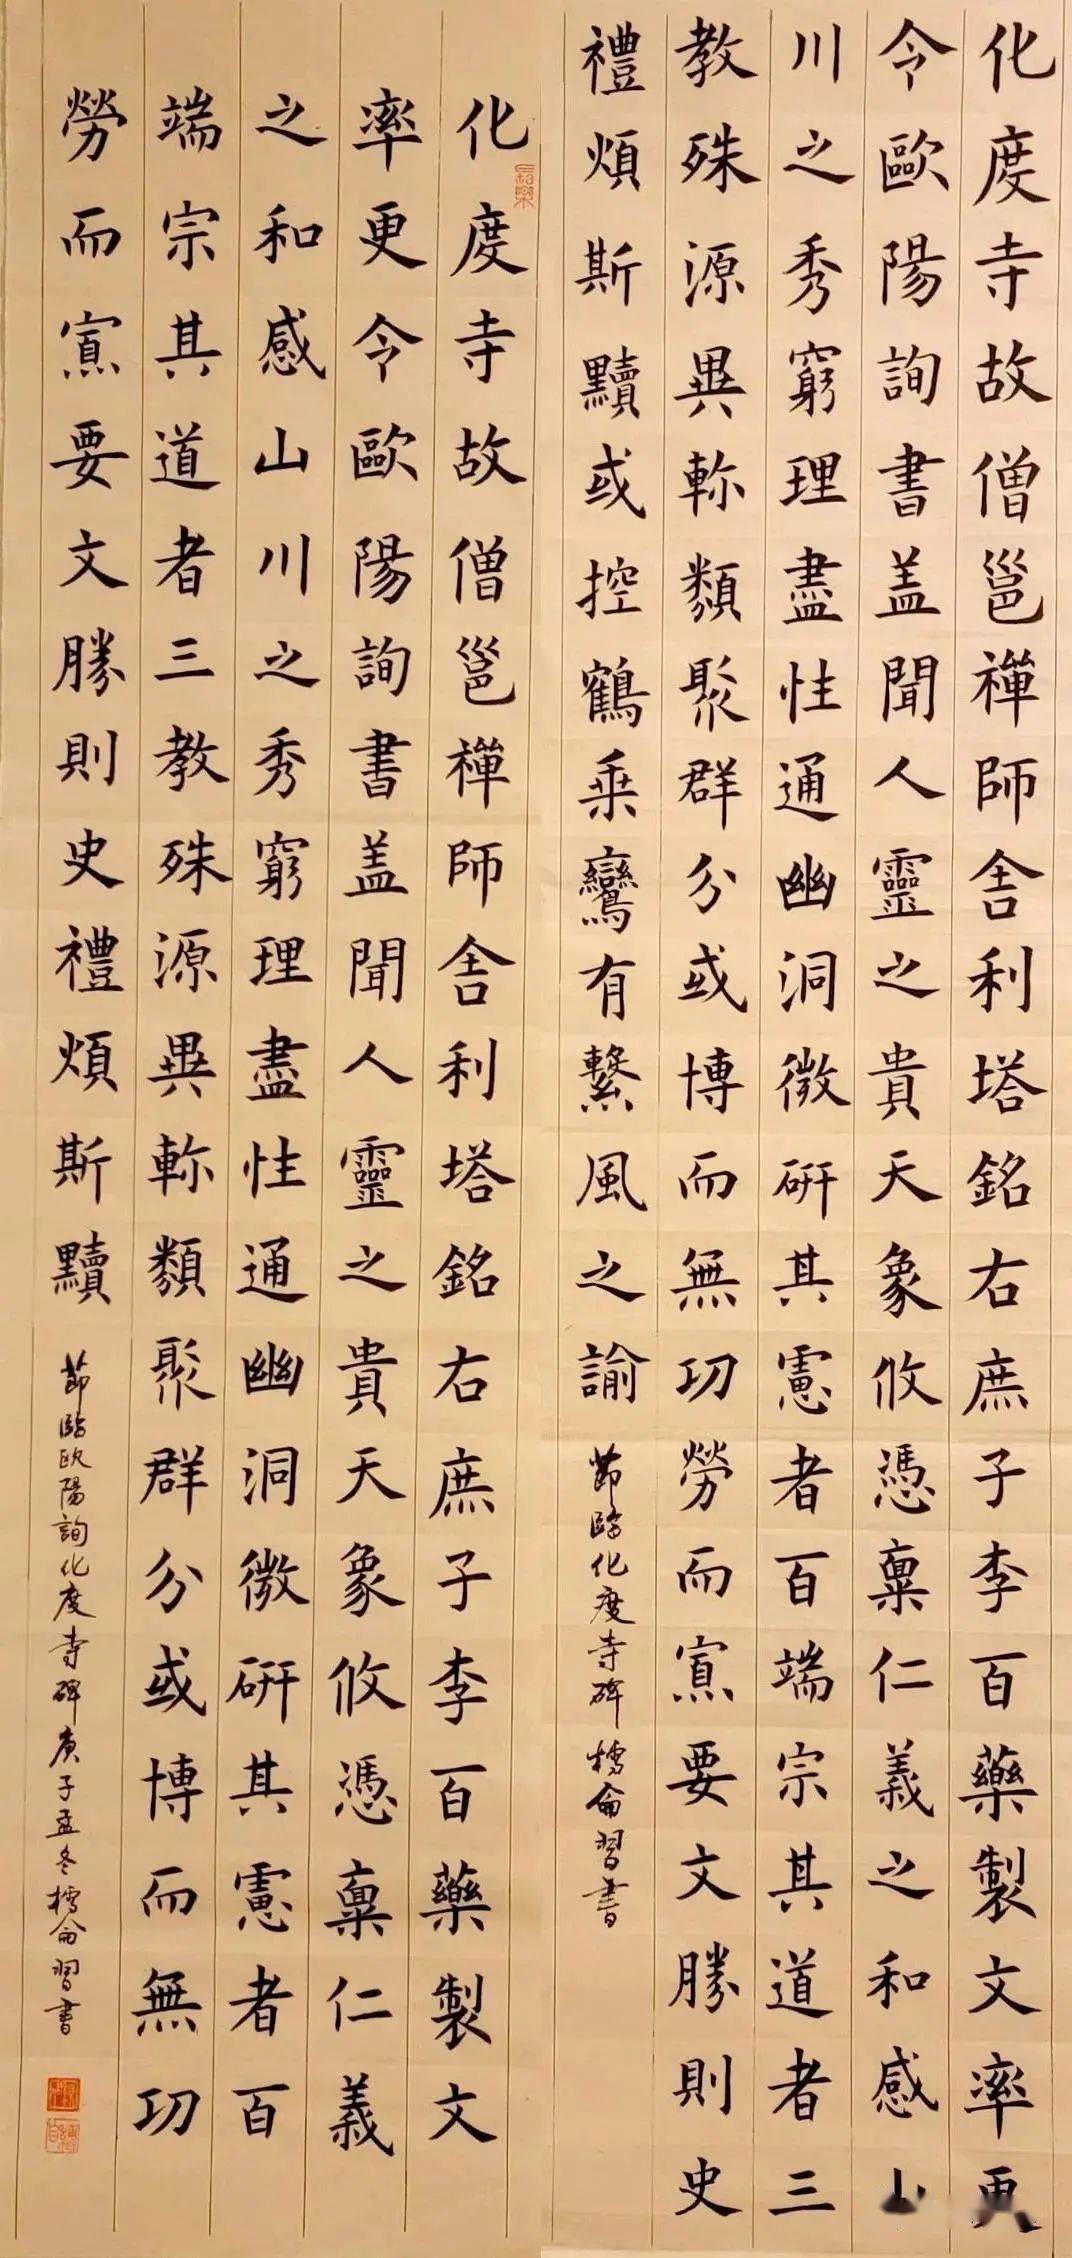 化度寺故僧邕禪師舍利塔銘右庶子李百藥製文率更
令歐陽詢書盖聞人靈之貴天象攸憑稟仁義之和感山
川之秀窮理盡性通幽洞微研其慮者百端宗其道者三
教殊源異軫類聚群分或博而無功勞而寡要文勝則史
禮煩斯黷或控鶴乗鸞有繫風之諭
節臨化度寺碑 習書
化度寺故僧邕禪師舍利塔銘右庶子李百藥製文
率更令歐陽詢書盖聞人靈之貴天象攸憑稟仁義
之和感山川之秀窮理盡性通幽洞微研其慮者百
端宗其道者三教殊源異軫類聚群分或博而無功
勞而寡要文勝則史禮煩斯黷
節臨歐陽詢化度寺碑庚子孟冬 習書